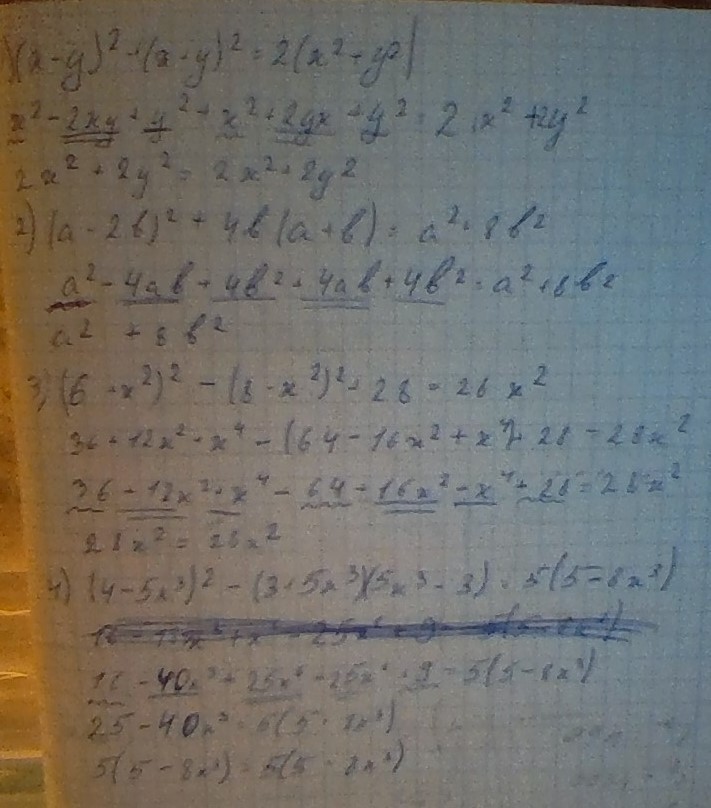 )(x-y)² + (x+y)² = 2(x²+y²)
x² - 2xy + y² + x² + 2yx + y² = 2x² + 2y²
2x² + 2y² = 2x² + 2y²
2) (a-2b)² + 4b(a+b) = a² + 8b²
a² - 4ab + 4b² + 4ab + 4b² = a² + 8b²
a² + 8b²
3) (6+x²)² - (8-x²)² + 28 = 28x²
36 + 12x² + x⁴ - (64 - 16x² + x⁴) + 28 = 28x²
36 + 12x² + x⁴ - 64 + 16x² - x⁴ + 28 = 28x²
28x² = 28x²
4) (4-5x³)² - (3+5x³)(5x³-3) = 5(5-8x³)
16 - 40x³ + 25x⁶ - 25x⁶ + 9 = 5(5-8x³)
25 - 40x³ = 5(5-8x³)
5(5-8x³) = 5(5-8x³)